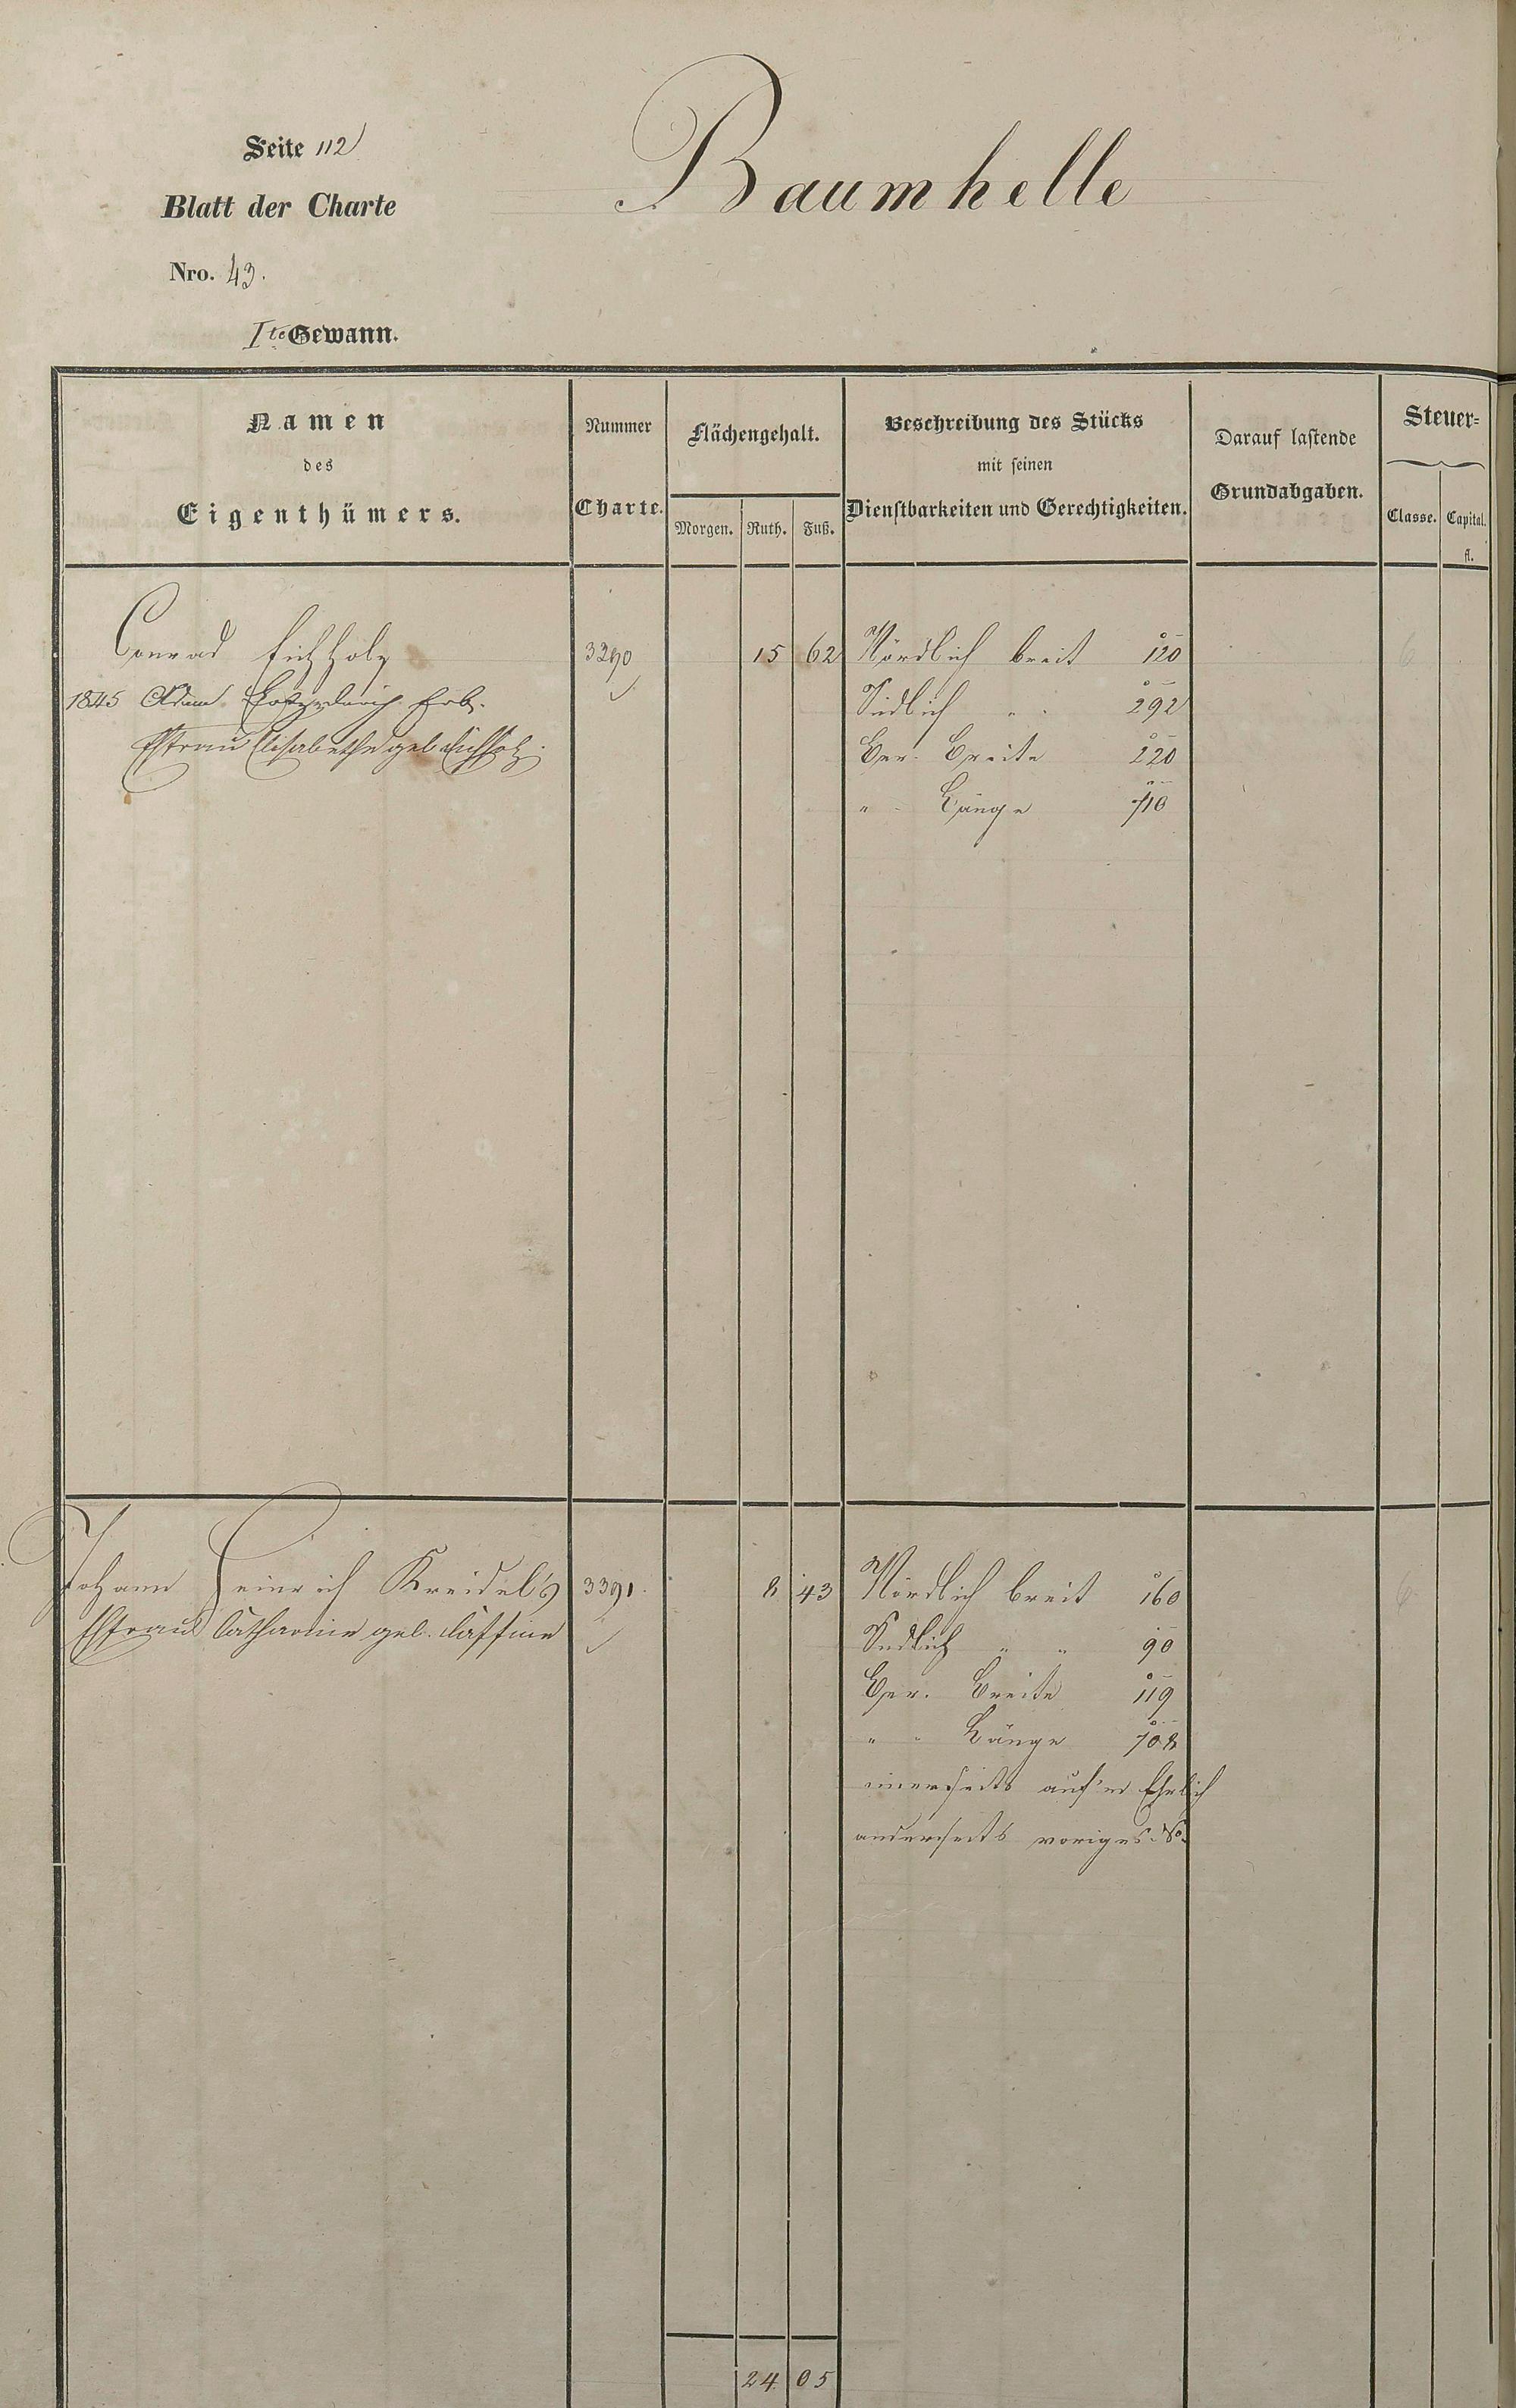 Seite 112
Baumhelle
Blatt der Charte
Nro. 43.
Ite Gewann.
Namen
des
Eigenthümers.
Nummer
Charte.
Flächengehalt.
Morgen. Ruth. Fuß.
Beschreibung des Stücks
mit seinen
Dienstbarkeiten und Gerechtigkeiten.
Darauf lastende
Grundabgaben.
Steuer-
Classe. Capital.
fl.
Conrad Eichholz 3290 15 62 Nördlich breit 120 6
1845 Adam Erb. Südlich " " 292
Ehfrau Elisabethe geb. Eichholz. Ger. Breite 220
" " Länge 710
Johann Heinrich Kreidel's 3391 8 43 Nördlich breit 160 6
Ehfrau Catharine geb. Südlich " " 90
Ger. Breite 119
" " Länge 708
einerseits auf'm Ehrlich
anderseits voriges No.
24 05